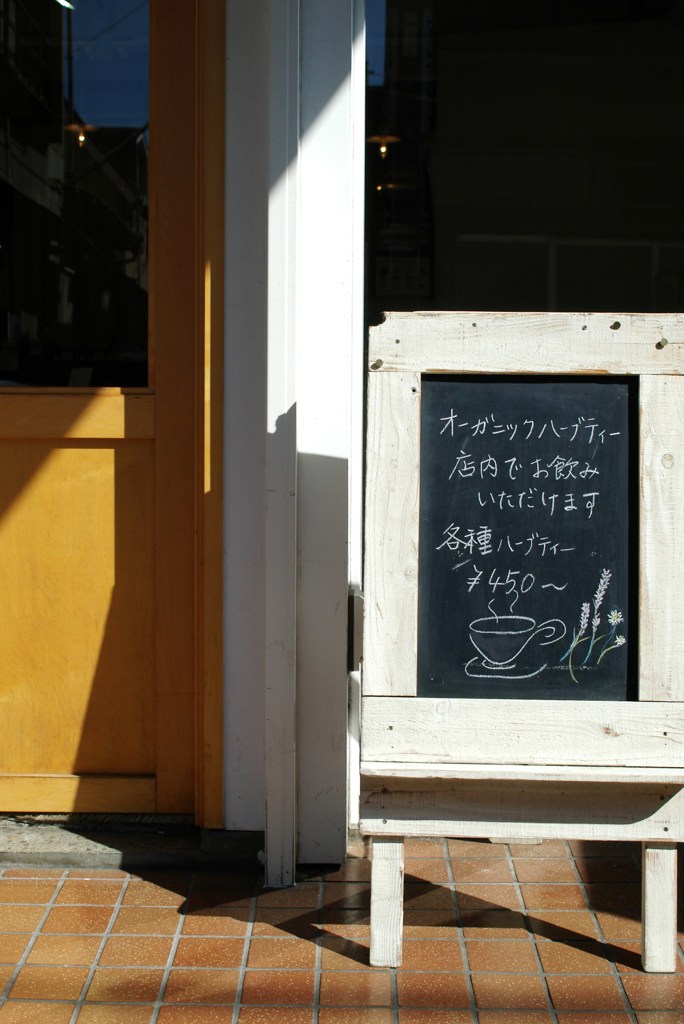 オーガニックハーブティー
店内でお飲み
いただけます
各種ハーブティー
¥450〜